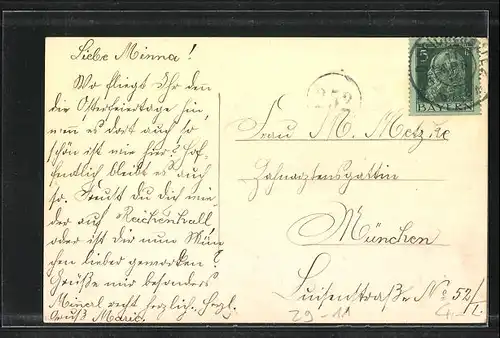 Liebe Minna!
Wo fliegt Ihr den
die Osterfeiertage hin,
wenn es dort auch so
schön ist wie hier? Hof-
fentlich bleibt es auch
so. Freust Du Dich wie-
der auf Reichenhall
oder ist dir nun Mün-
chen lieber geworden?
Grüße mir besonders
recht herzlich. Herzl.
Gruß Marie.
5
BAYERN
253
Frau M. Metzke
Zahnarztensgattin
München
Luisenstraße No 52/I.
29-11